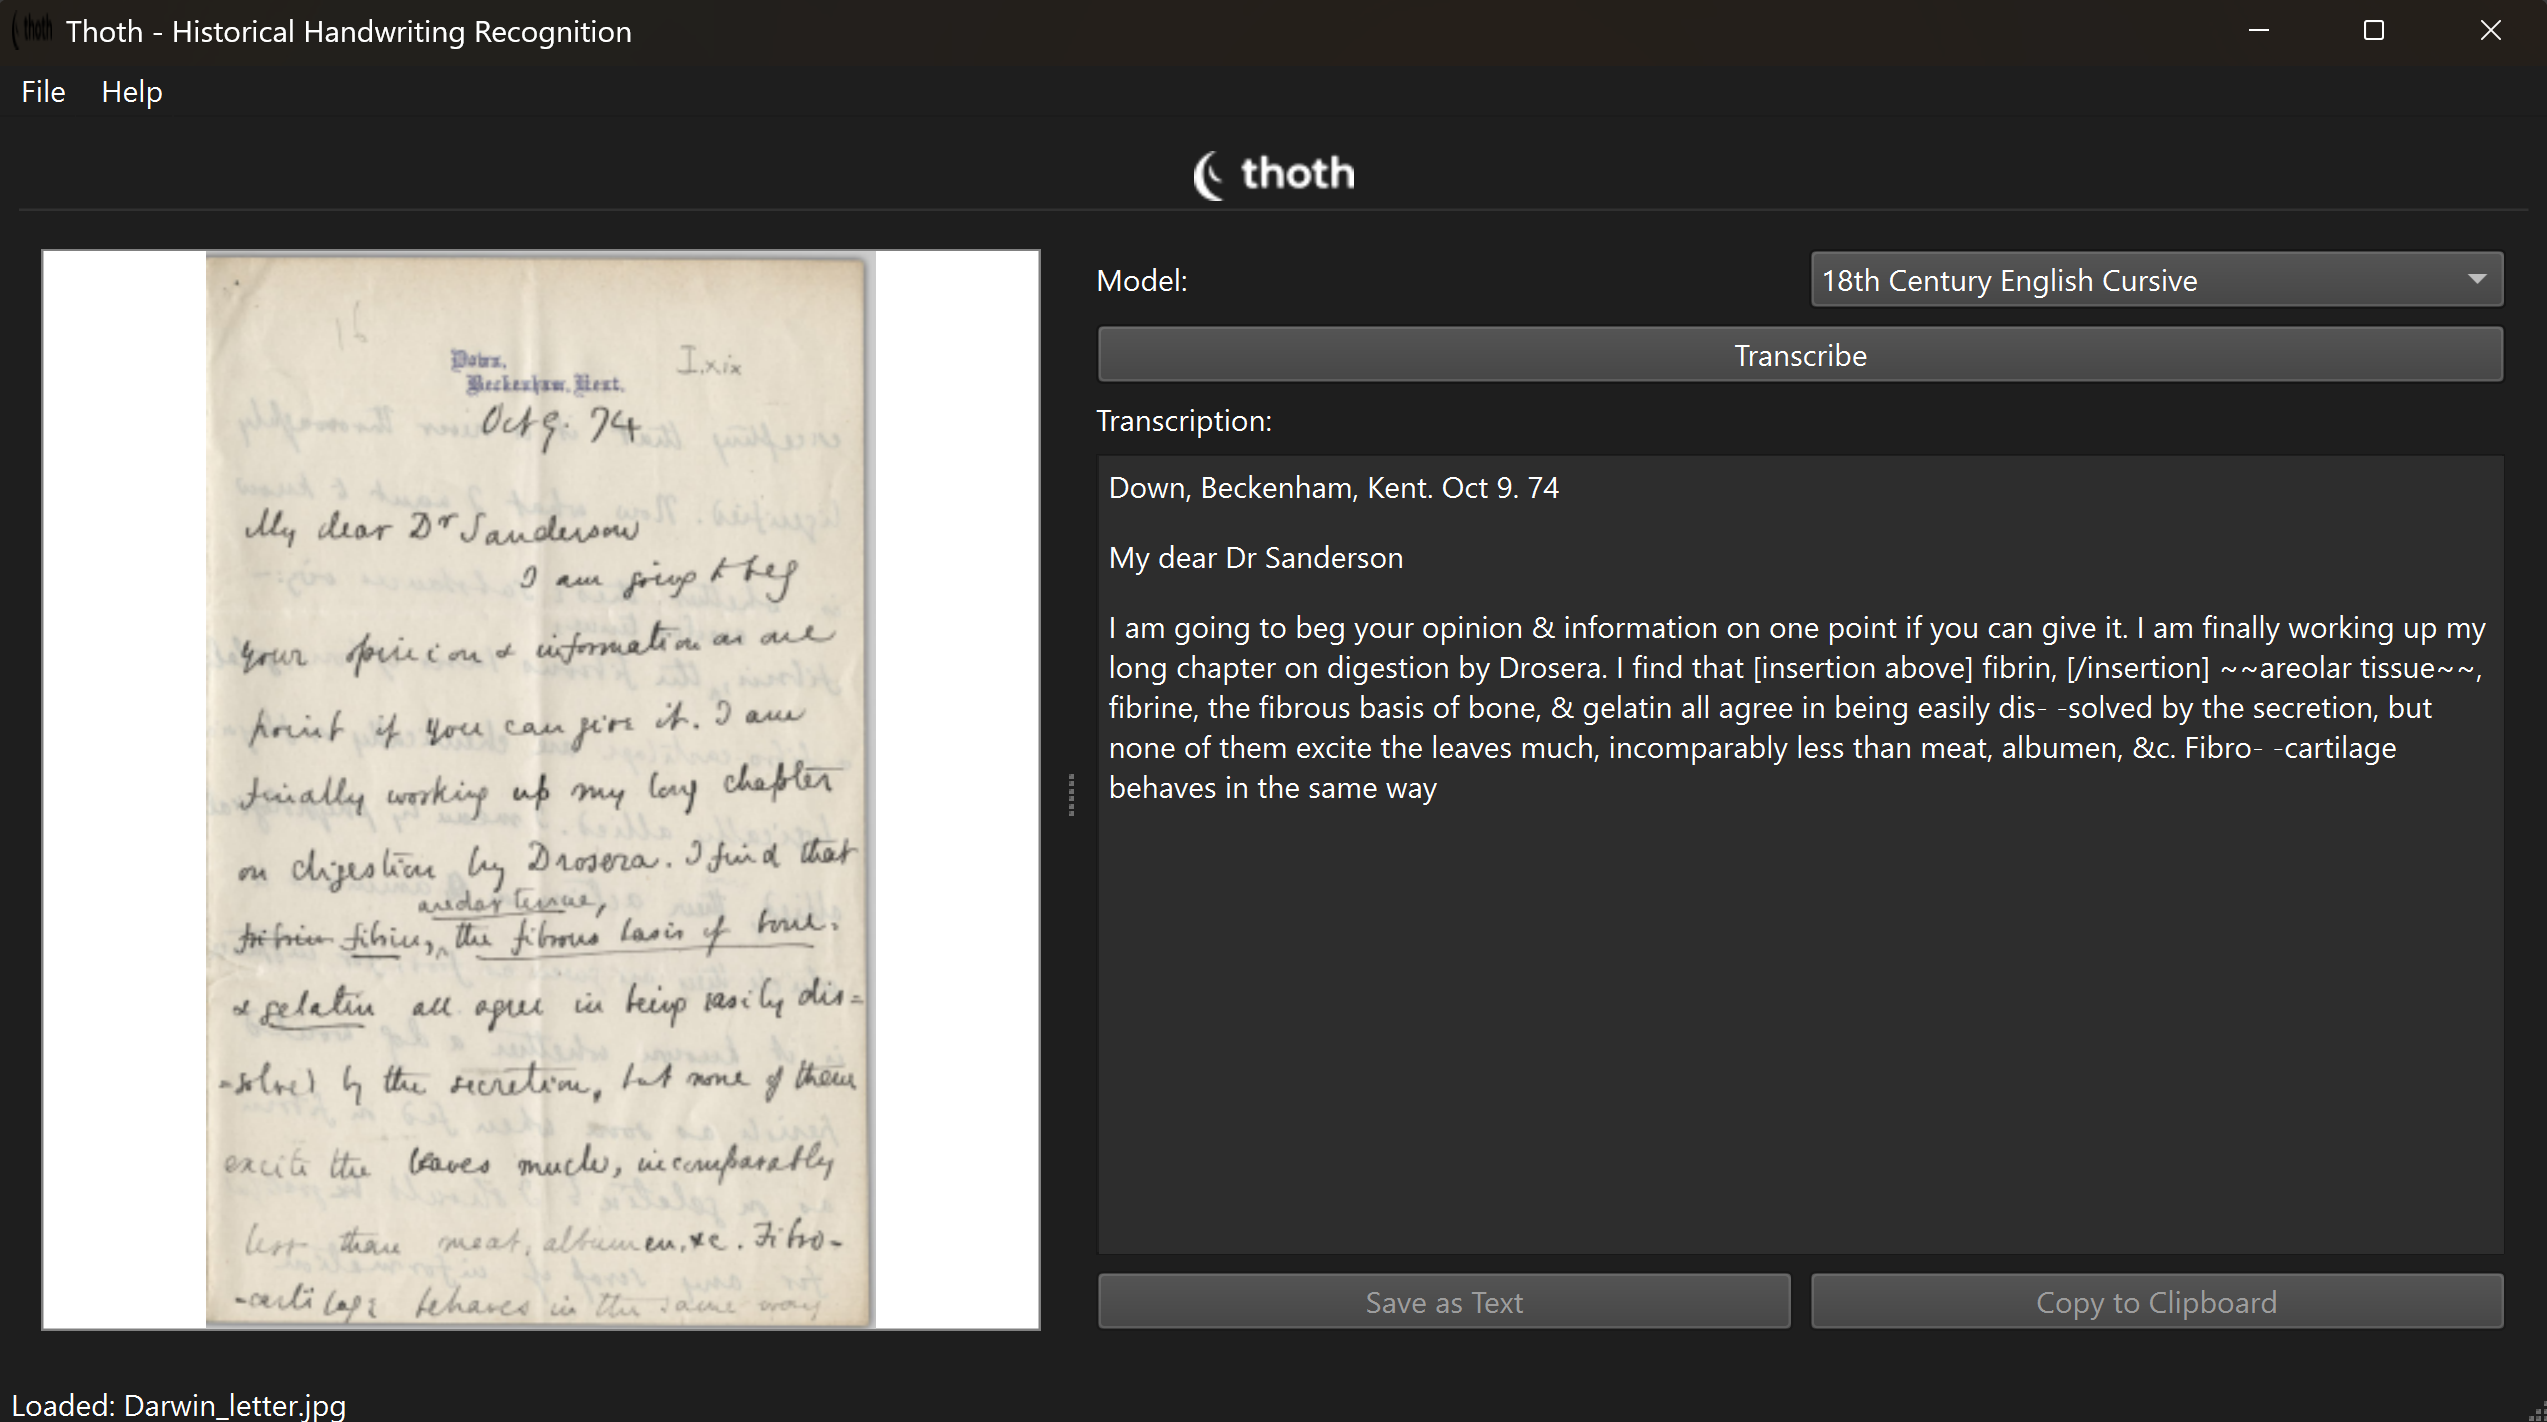 thoth
Thoth - Historical Handwriting Recognition
File Help
thoth
I.xix
Down,
Beckenham, Kent.
Oct 9. 74
My dear Dr Sanderson
I am going to beg
your opinion & information on one
point if you can give it. I am
finally working up my long chapter
on digestion by Drosera. I find that
areolar tissue,
fibrin, the fibrous basis of bone,
& gelatin all agree in being easily dis=
=solved by the secretion, but none of them
excite the leaves much, incomparably
less than meat, albumen, &c. Fibro-
-cartilage behaves in the same way
Model:
18th Century English Cursive
Transcribe
Transcription:
Down, Beckenham, Kent. Oct 9. 74
My dear Dr Sanderson
I am going to beg your opinion & information on one point if you can give it. I am finally working up my
long chapter on digestion by Drosera. I find that [insertion above] fibrin, [/insertion] ~~areolar tissue~~,
fibrine, the fibrous basis of bone, & gelatin all agree in being easily dis- -solved by the secretion, but
none of them excite the leaves much, incomparably less than meat, albumen, &c. Fibro- -cartilage
behaves in the same way
Save as Text
Copy to Clipboard
Loaded: Darwin_letter.jpg